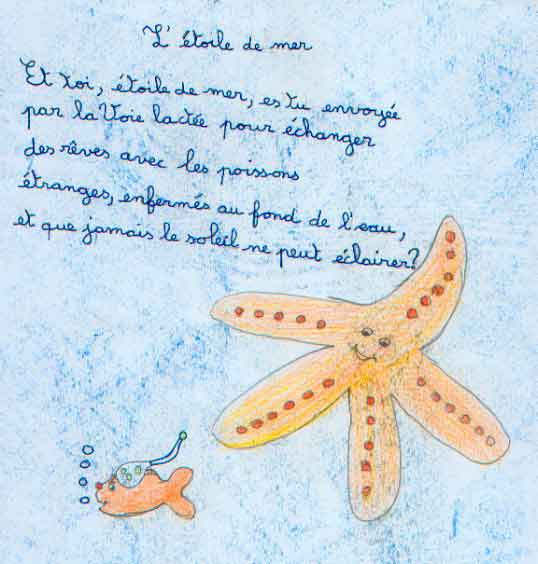 L'étoile de mer
Et toi, étoile de mer, es tu envoyée
par la Voie lactée pour échanger
des rêves avec les poissons
étranges, enfermés au fond de l'eau,
et que jamais le soleil ne peut éclairer?